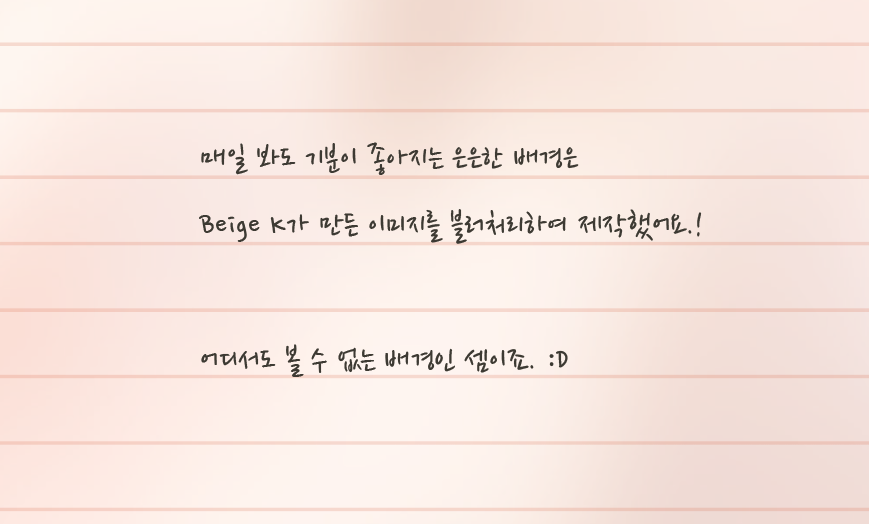 매일 봐도 기분이 좋아지는 은은한 배경은
Beige K가 만든 이미지를 블러처리하여 제작했어요.!
어디서도 볼 수 없는 배경인 셈이죠. :D